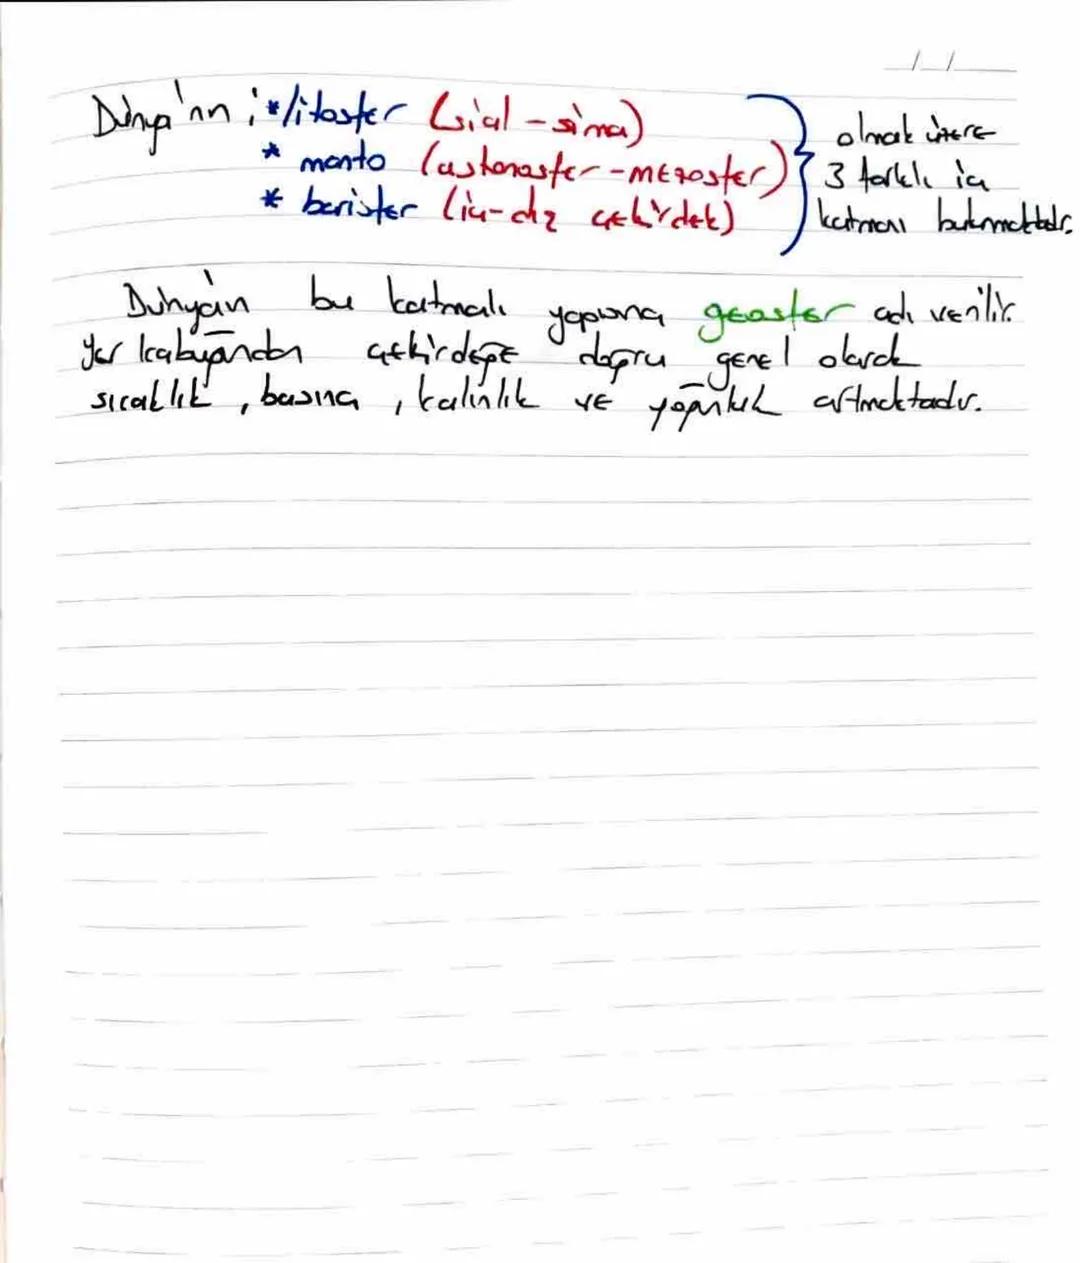 Dünya'nın ; * litosfer (sial - sima)
* manto (astenosfer - mezosfer)
* barisfer (iç - dış çekirdek)
olmak üzere
3 farklı iç
katmanı bulunmaktadır.
Dünya'nın bu katmanlı yapısına geosfer adı verilir.
Yer kabuğundan çekirdeğe doğru genel olarak
sıcaklık, basınç, kalınlık ve yoğunluk artmaktadır.